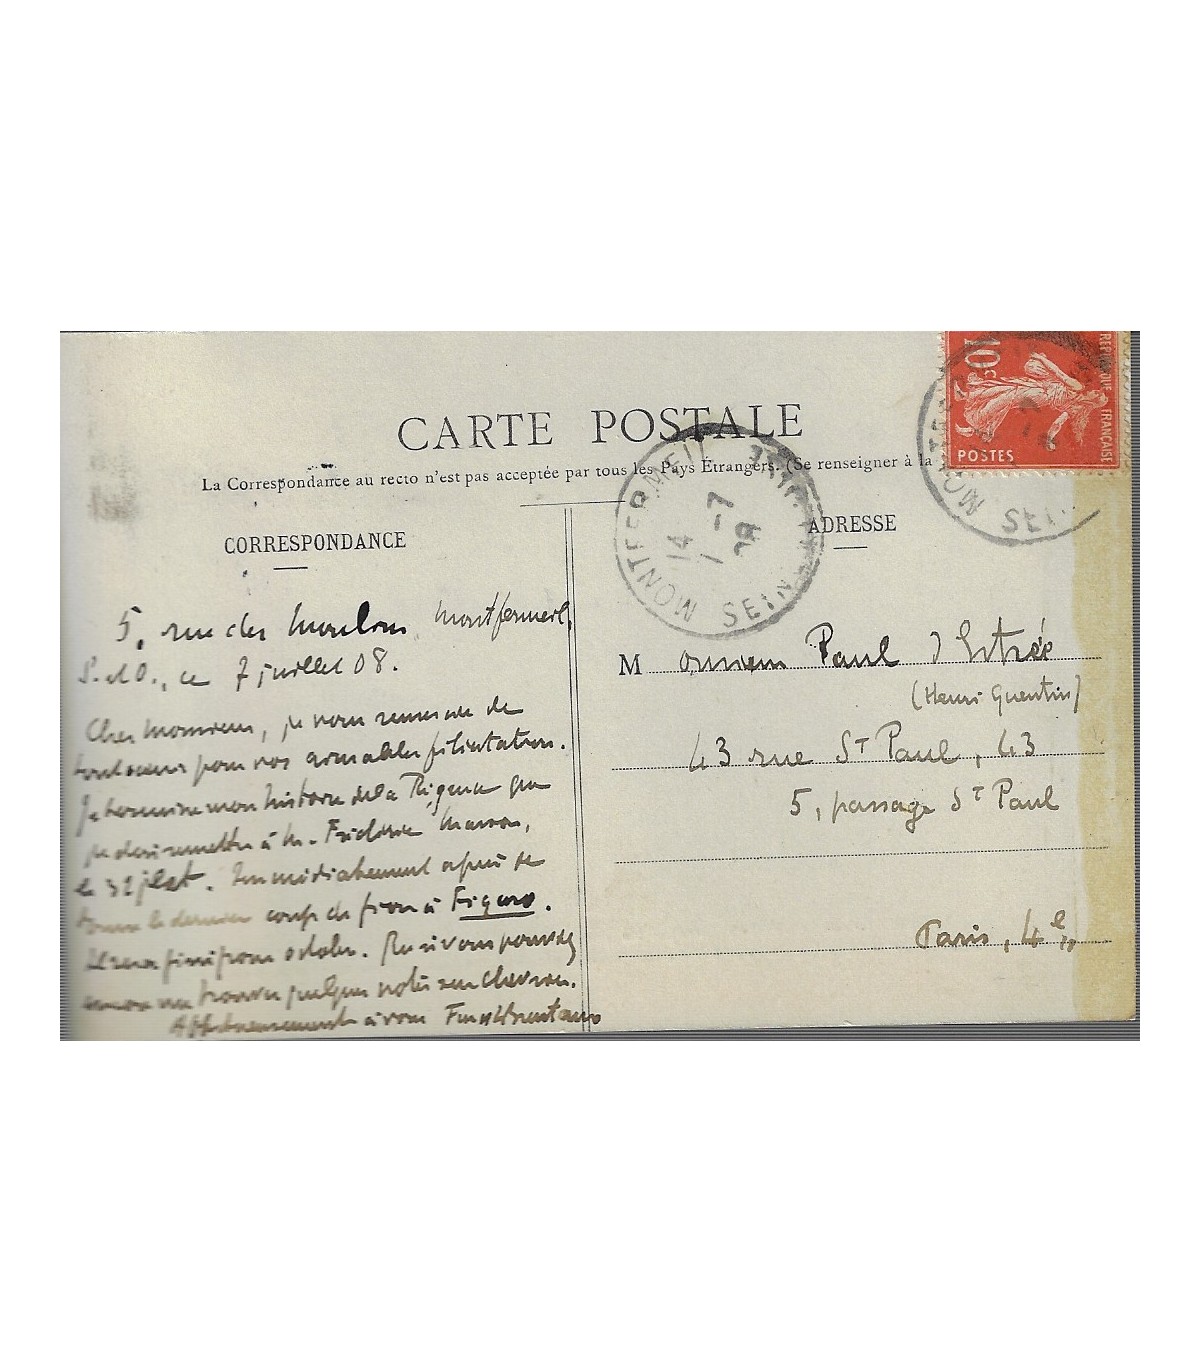 CARTE POSTALE
La Correspondance au recto n'est pas acceptée par tous les Pays Étrangers. (Se renseigner à la
CORRESPONDANCE
ADRESSE
10c
REPUBLIQUE FRANÇAISE
POSTES
MONTFERMEIL
14
7-7
08
SEINE
5, rue des Moulins Montfermeil,
S. et O., ce 7 juillet 08.
Cher Monsieur, je vous remercie de
tout coeur pour vos aimables félicitations.
Je termine mon histoire de la Régence que
je dois remettre à M. Frédéric Masson,
le 31 jlet. Immédiatement après je
donne le dernier coup de fion à Figaro.
Il sera fini pour octobre. Si vous pouvez
encore me trouver quelques notes sur
à vous Funck-Brentano
M onsieur Paul d'Estrée
(Henri Quentin)
43 rue St Paul, 43
5, passage St Paul
Paris, 4e